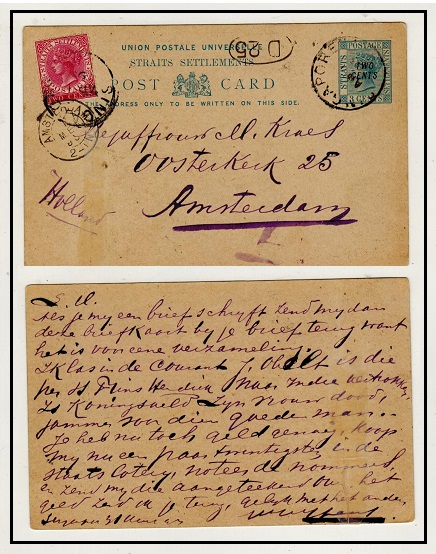 UNION POSTALE UNIVERSELLE
STRAITS SETTLEMENTS
POST CARD
THE ADDRESS ONLY TO BE WRITTEN ON THIS SIDE.
STRAITS SETTLEMENTS
TWO CENTS
STRAITS
POSTAGE
TWO
CENTS
3 CENTS
SINGAPORE
D 25
AMST
Mejuffrouw M. Kraes
Oosterkerk 25
Amsterdam
Holland
als je my een brief schryft zend my dan
deze briefkaart by je brief terug want
het is voor eene verzameling.
Ik las in de Courant is die
per Hendrik naar Indie vertrokken
Is Koningsveld zyn vrouw dood,
jammer voor dien goede man.
Je heb nu toch geld genoeg, koop
my nu een paar in de
Staats Lotery, noteer de nommers
en zend my die aangeteekend over, het
geld zend ik je terug, gelyk met het andere